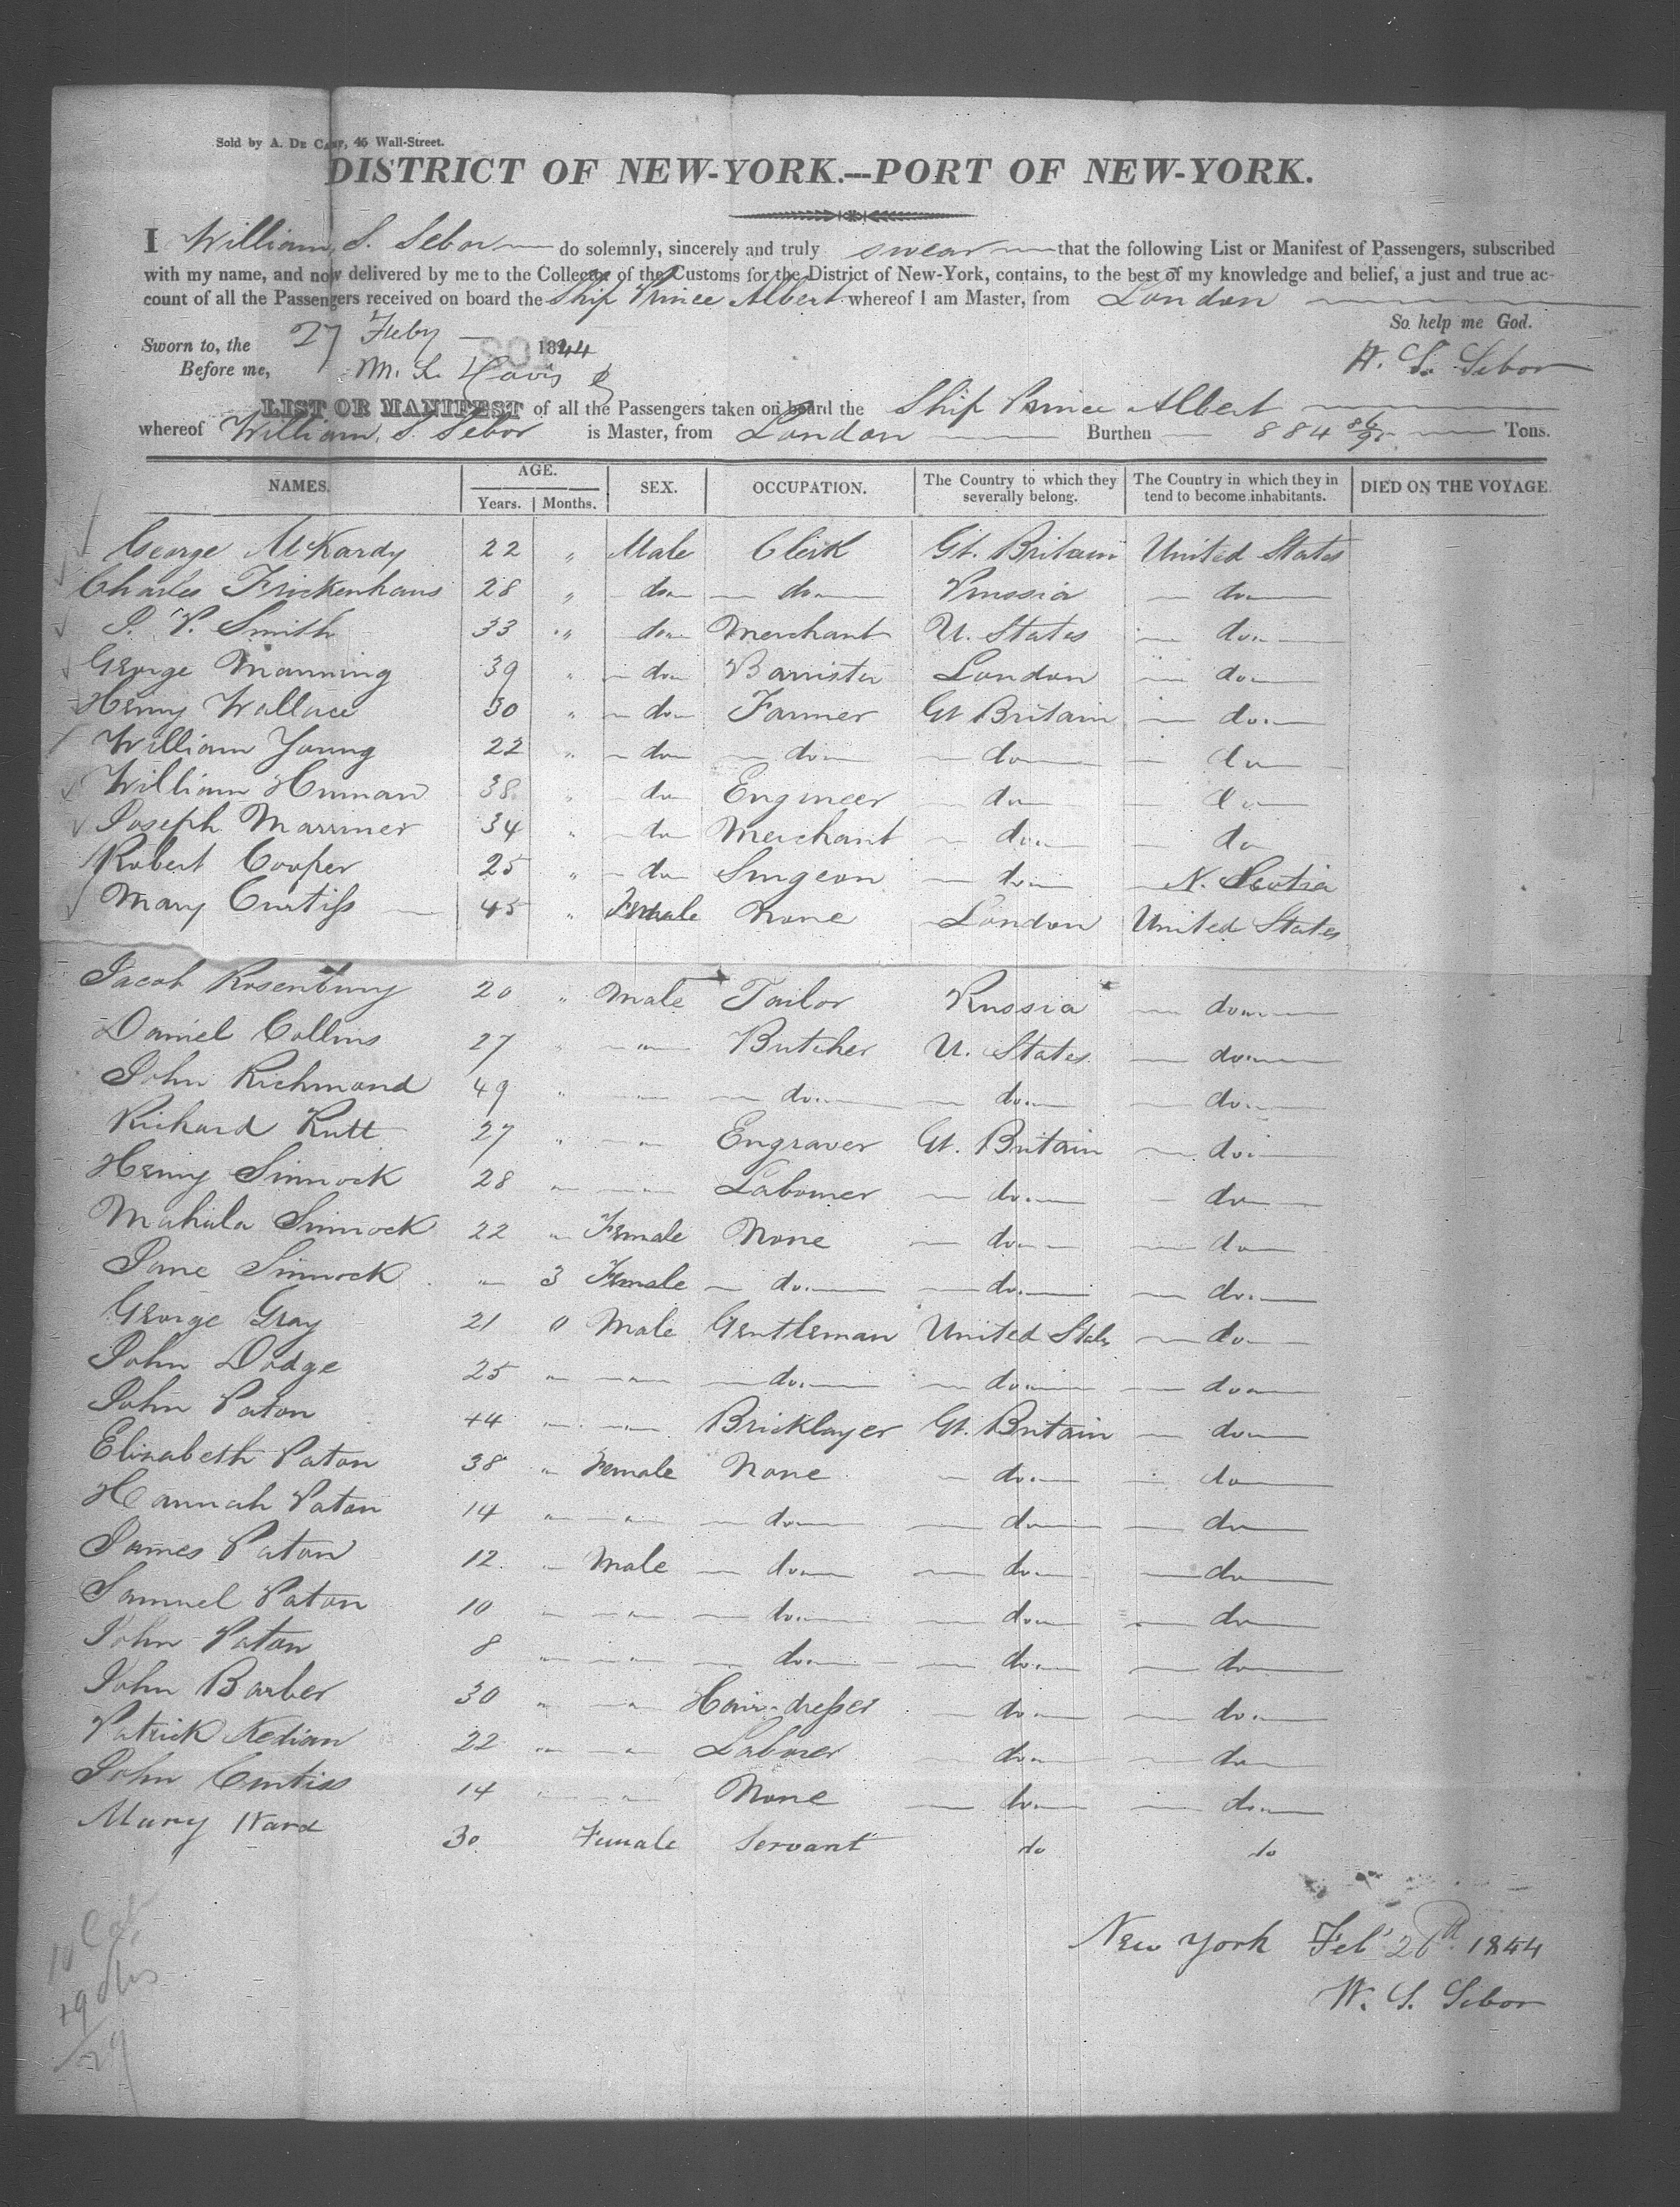 Sold by A. De Camp, 45 Wall-Street.
DISTRICT OF NEW-YORK.---PORT OF NEW-YORK.
I William S. Sebor do solemnly, sincerely and truly swear that the following List or Manifest of Passengers, subscribed
with my name, and now delivered by me to the Collector of the Customs for the District of New-York, contains, to the best of my knowledge and belief, a just and true ac-
count of all the Passengers received on board the Ship Prince Albert whereof I am Master, from London
So help me God.
Sworn to, the 27 Feby 1844
Before me, M. L. Davis W. S. Sebor
LIST OR MANIFEST of all the Passengers taken on board the Ship Prince Albert
whereof William S. Sebor is Master, from London Burthen 884 86/95 Tons.
NAMES. AGE. Years. Months. SEX. OCCUPATION. The Country to which they severally belong. The Country in which they in tend to become inhabitants. DIED ON THE VOYAGE.
George McKardy 22 " Male Clerk Gt. Britain United States
Charles Frickenhaus 28 " do do Prussia do
J. P. Smith 33 " do Merchant U. States do
George Manning 39 " do Barrister London do
Henry Wallace 30 " do Farmer Gt Britain do
William Young 22 " do do do do
William Human 38 " do Engineer do do
Joseph Marriner 34 " do Merchant do do
Robert Cooper 25 " do Surgeon do N. Scotia
Mary Curtiss 45 " Female None London United States
Jacob Rosenburg 20 " Male Tailor Russia do
Daniel Collins 27 " " Butcher U. States do
John Richmond 49 " " do do do
Richard Rutt 27 " " Engraver Gt. Britain do
Henry Sinnock 28 " " Labourer do do
Mahala Sinnock 22 " Female None do do
Jane Sinnock " 3 Female do do do
George Gray 21 0 Male Gentleman United States do
John Dodge 25 " " do do do
John Paton 44 " " Bricklayer Gt. Britain do
Elizabeth Paton 38 " Female None do do
Hannah Paton 14 " " do do do
James Paton 12 " Male do do do
Samuel Paton 10 " " do do do
John Paton 8 " " do do do
John Barber 30 " " Hair-dresser do do
Patrick Kedian 22 " " Laborer do do
John Curtiss 14 " " None do do
Mary Ward 30 Female Servant do do
10 Cab.
19
29
New York Feb 26th 1844
W. S. Sebor